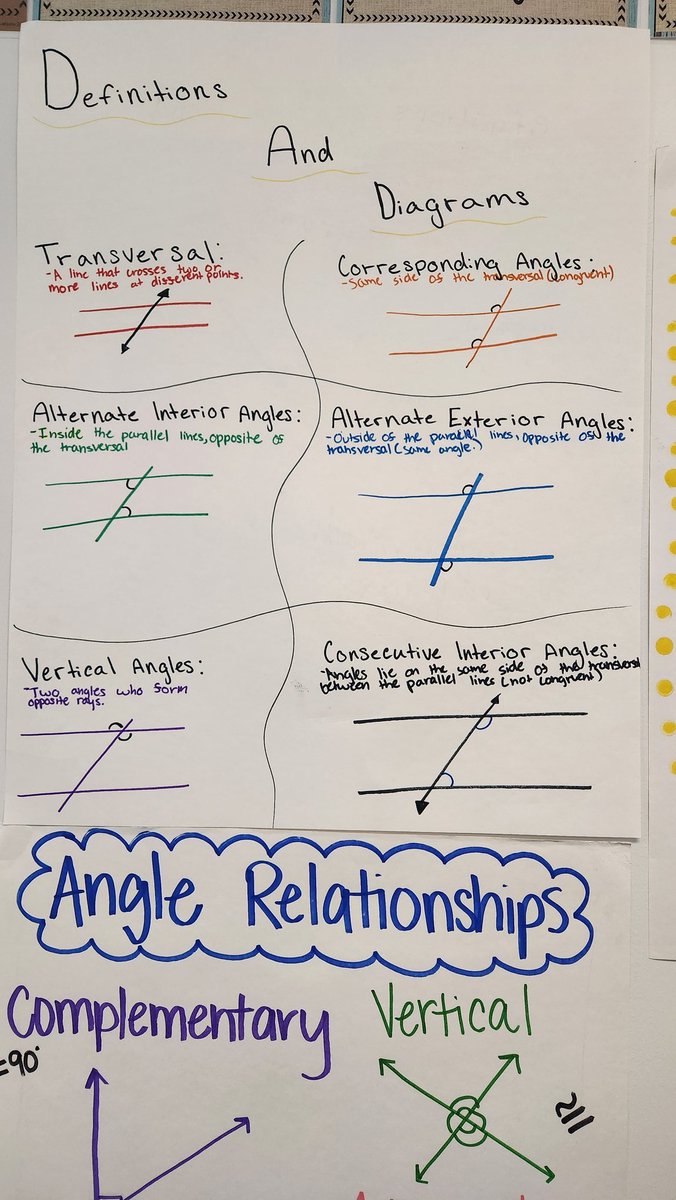 Definitions
And
Diagrams
Transversal:
-A line that crosses two or
more lines at different points.
Corresponding Angles:
-Same side of the transversal (congruent)
Alternate Interior Angles:
-Inside the parallel lines, opposite of
the transversal
Alternate Exterior Angles:
-Outside of the parallel lines, opposite of the
transversal (same angle.)
Vertical Angles:
-Two angles who form
opposite rays.
Consecutive Interior Angles:
-Angles lie on the same side of the transversal
between the parallel lines (not congruent)
Angle Relationships
Complementary
=90°
Vertical
≅